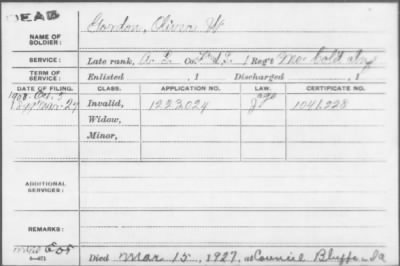 DEAD
Gordon, Oliver W
NAME OF SOLDIER:
SERVICE: Late rank, Co. 1 Reg't Mo. Cold Inf
TERM OF SERVICE: Enlisted , 1 Discharged , 1
DATE OF FILING. CLASS. APPLICATION NO. LAW. CERTIFICATE NO.
1908. Oct. 5 Invalid, 1223024 age 1041228
Widow,
Minor,
ADDITIONAL SERVICES:
REMARKS:
Died Mar. 15, 1927, at Council Bluffs Ia